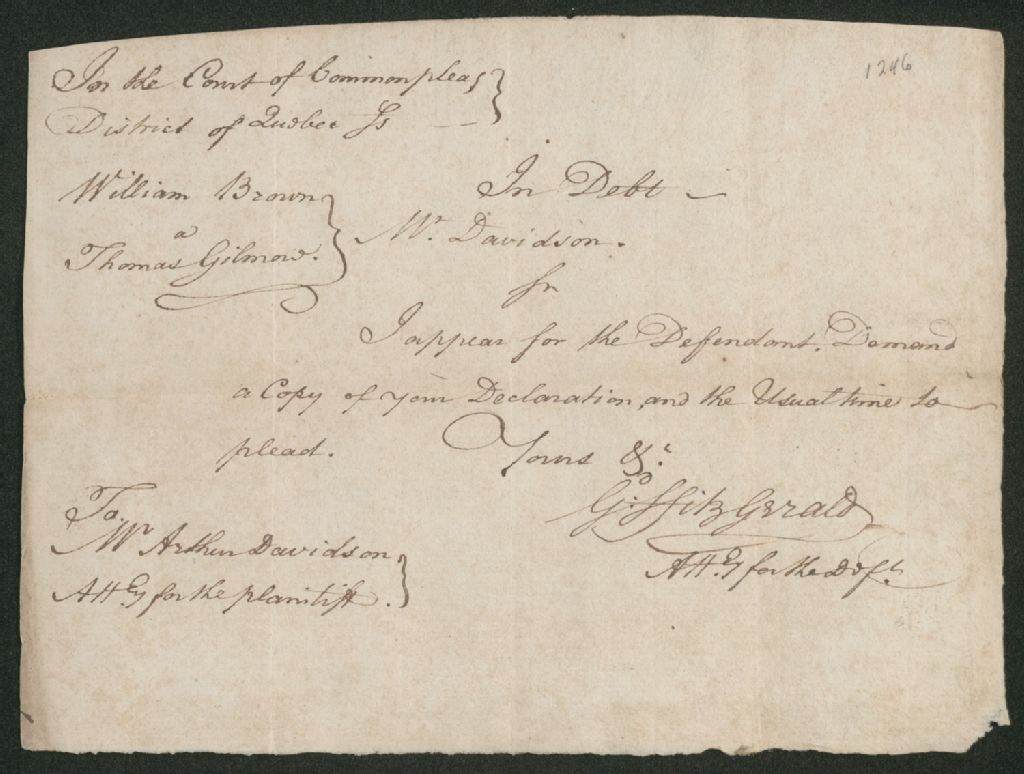 1246
In the Court of Commonpleas
District of Quebec Ss
William Brown
a
Thomas Gilmore.
In Debt
Mr. Davidson.
Sr
I appear for the Defendant. Demand
a Copy of your Declaration and the Usual time to
plead.
Yours &c
Go. Fitz Gerald
Atty for the Deft.
To
Mr Arthur Davidson
Atty for the plaintiff.